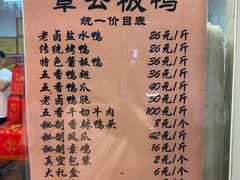 章云板鸭
统一价目表
老卤盐水鸭 26元/斤
传统烤鸭 26元/斤
特色酱板鸭 36元/斤
五香鸭翅 36元/斤
五香鸭爪 40元/斤
老卤鸭肫 50元/斤
五香干切牛肉 100元/斤
秘制香辣鸭头 8元/个
秘制凤爪 42元/斤
秘制素鸡 16元/斤
真空包装 2元/个
大礼盒 6元/个